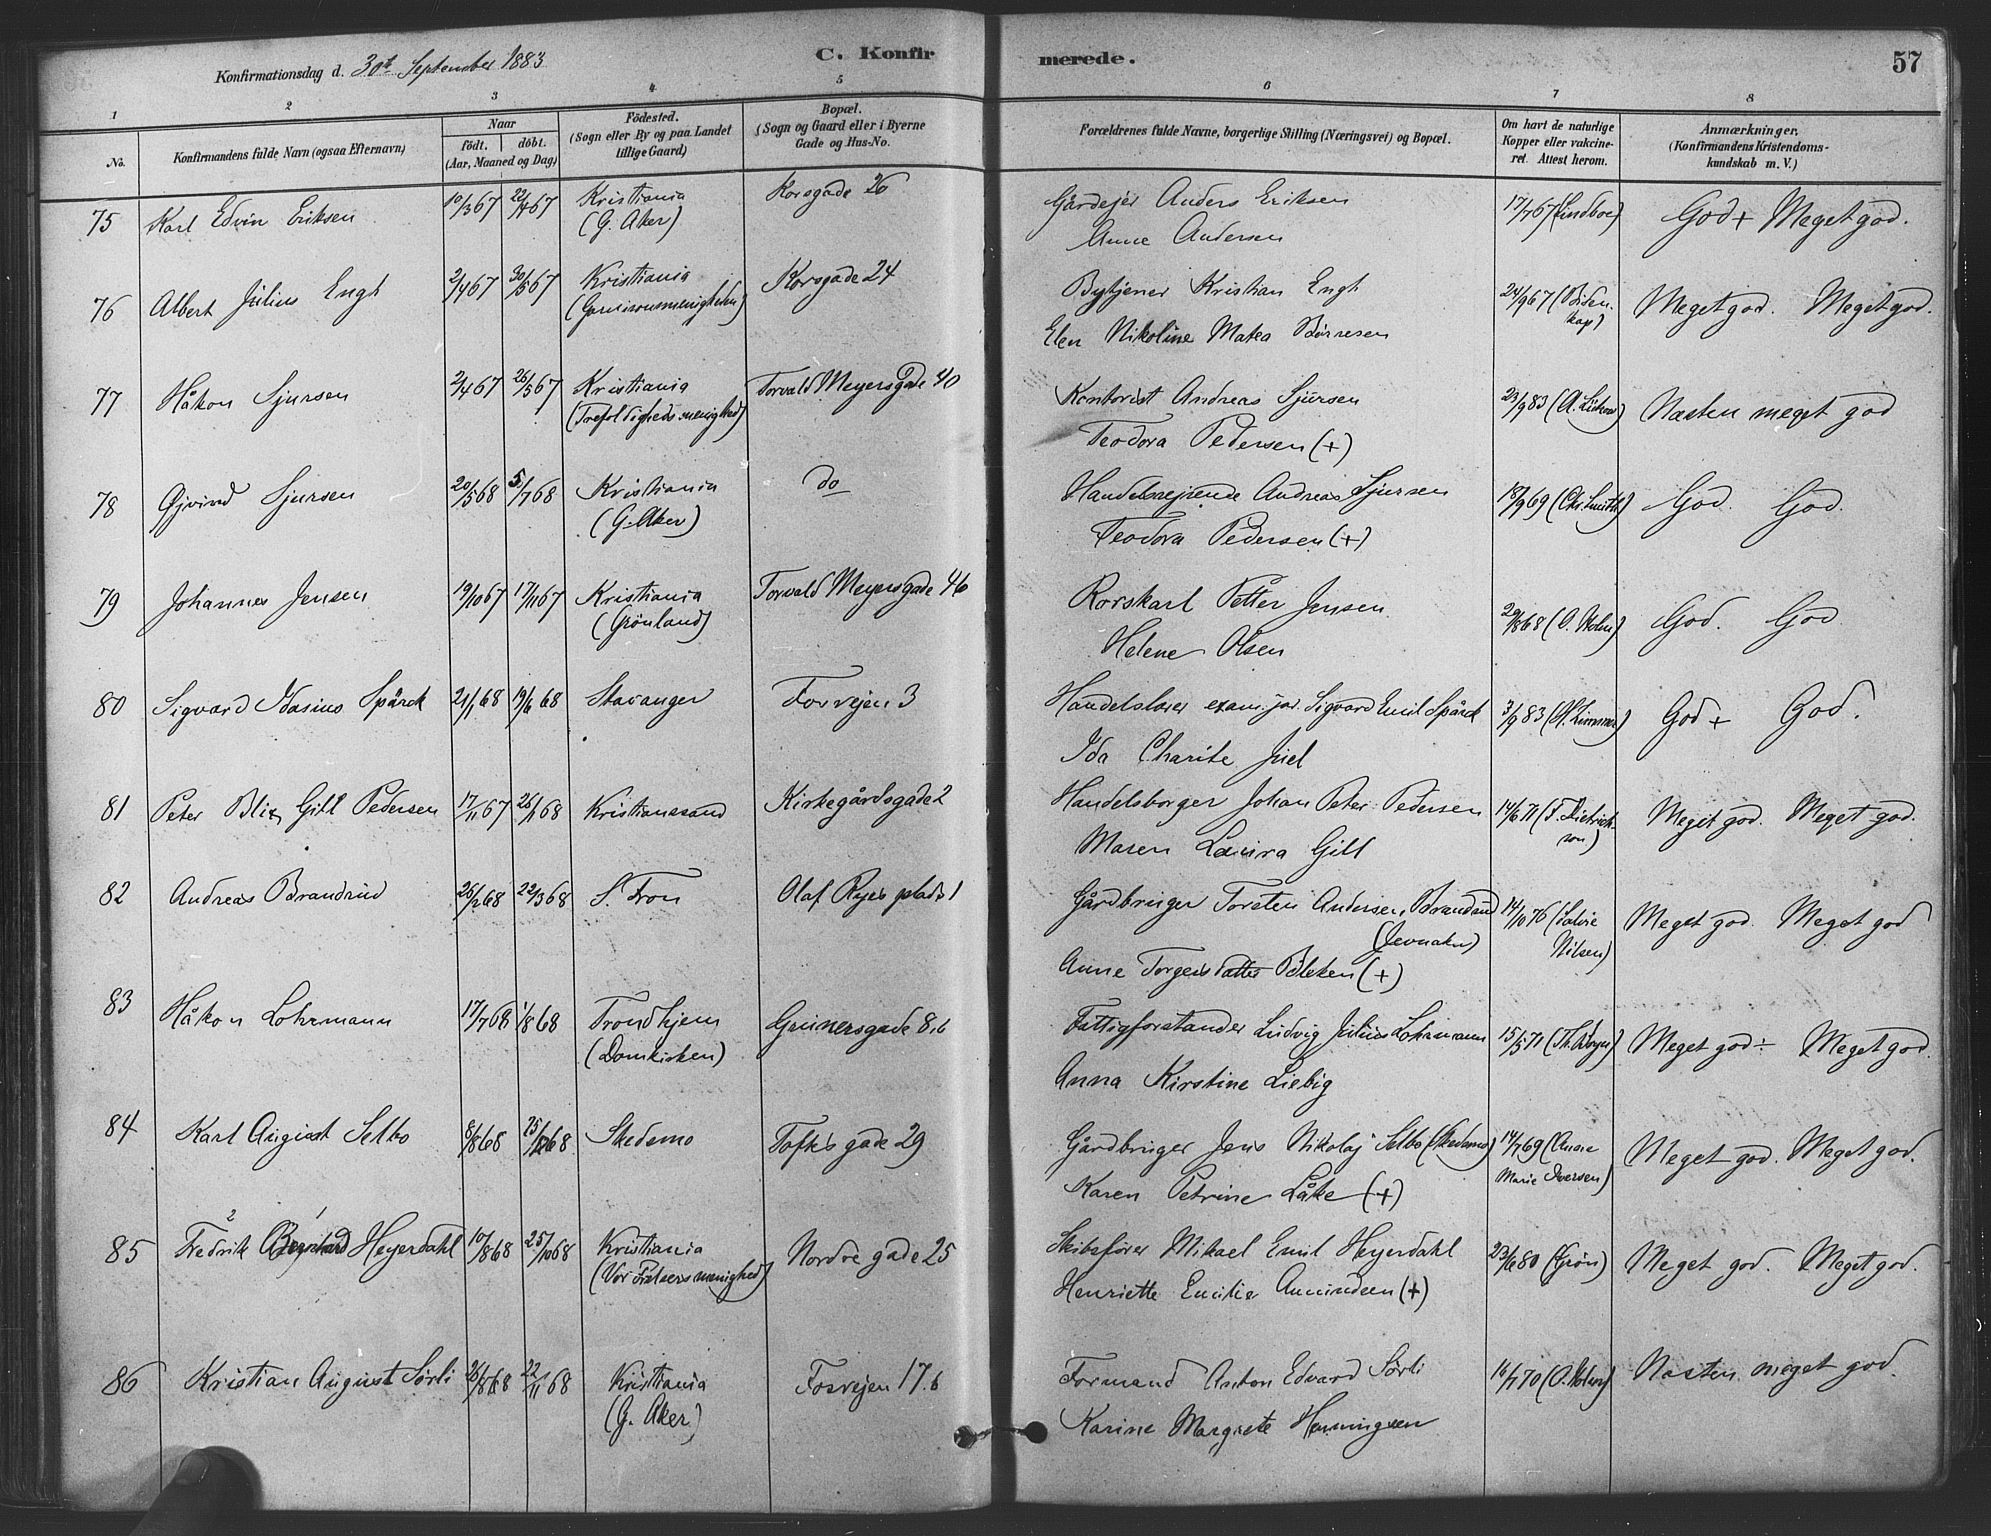 Konfirmationsdag d. 30te September 1883
C. Konfirmerede.
57
1 2 3 4 5 6 7 8
No.
Konfirmandens fulde Navn (ogsaa Efternavn)
Naar
födt. döbt.
(Aar, Maaned og Dag)
Födested.
(Sogn eller By og paa Landet
tillige Gaard)
Bopæl.
(Sogn og Gaard eller i Byerne
Gade og Hus-No.
Forældrenes fulde Navne, borgerlige Stilling (Næringsvei) og Bopæl.
Om havt de naturlige
Kopper eller vakcine-
ret. Attest herom.
Anmærkninger.
(Konfirmandens Kristendoms-
kundskab m. V.)
75 Karl Edvin Eriksen 10/3 67 22/4 67 Kristiania Korsgade 26 Gårdejer Anders Eriksen 17/7 67 (Lindboe) God + Meget god.
(G. Aker) Anne Andersen
76 Albert Julius Engh 2/4 67 30/5 67 Kristiania Korsgade 24 Bytjener Kristian Engh 24/9 67 Meget god. Meget god.
(Garnisonsmenigheden) Elen Nikoline Matea Börresen
77 Håkon Sjursen 2/4 67 26/5 67 Kristiania Torvald Meyersgade 40 Kontorist Andreas Sjursen 23/9 83 Næsten meget god
(Trefoldighedsmenighed) Teodora Pedersen (+)
78 Øjvind Sjursen 20/5 68 5/7 68 Kristiania do Handelsrejsende Andreas Sjursen 18/9 69 (Chr. Smith) God. God.
(G. Aker) Teodora Pedersen (+)
79 Johannes Jensen 19/10 67 17/11 67 Kristiania Torvald Meyersgade 46 Rorskarl Petter Jensen 29/8 68 (O. Holm) God. God
(Grönland) Helene Olsen
80 Sigvard Idasius Spårck 21/1 68 19/6 68 Stavanger Fosvejen 3 Handelslærer exam. jur. Sigvard Emil Spårck 3/9 83 God + God.
Ida Charite Juel
81 Peter Blix Gill Pedersen 17/11 67 26/1 68 Kristianssand Kirkegårdsgade 2 Handelsborger Johan Peter Pedersen 14/6 71 (F. Dietrich-
son) Meget god. Meget god.
Maren Laura Gill
82 Andreas Brandrud 26/2 68 22/3 68 S. Fron Olaf Ryes plads 1 Gårdbruger Torsten Andersen Brandrud 14/10 76 Meget god. Meget god
(Jevnaker) Nilsen)
Anne Torgersdatter Bleken (+)
83 Håkon Lohrmann 17/7 68 1/8 68 Trondhjem Grünersgade 8.b Fattigforstander Ludvig Julius Lohrmann 15/5 71 Meget god ÷ Meget god.
(Domkirken) Anna Kirstine Liebig
84 Karl August Selbo 8/8 68 25/12 68 Skedsmo Toftes gade 29 Gårdbruger Jens Nikolaj Selbo (Skedsmo) 14/7 69 (Anne
Marie Iversen) Meget god. Meget god.
Karen Petrine Låke (+)
2 1
85 Fredrik Bernhard Heyerdahl 10/8 68 25/10 68 Kristiania Nordre gade 25 Skibsfører Mikael Emil Heyerdahl 23/6 80 (Grön) Meget god. Meget god.
(Vor Frelsers menighed) Henriette Emilie Amundsen (+)
86 Kristian August Sörli 26/8 68 22/11 68 Kristiania Fosvejen 17.b Formand Anton Edvard Sörli 16/7 70 (O. Holm) Næsten meget god.
(G. Aker) Karine Margrete Henningsen